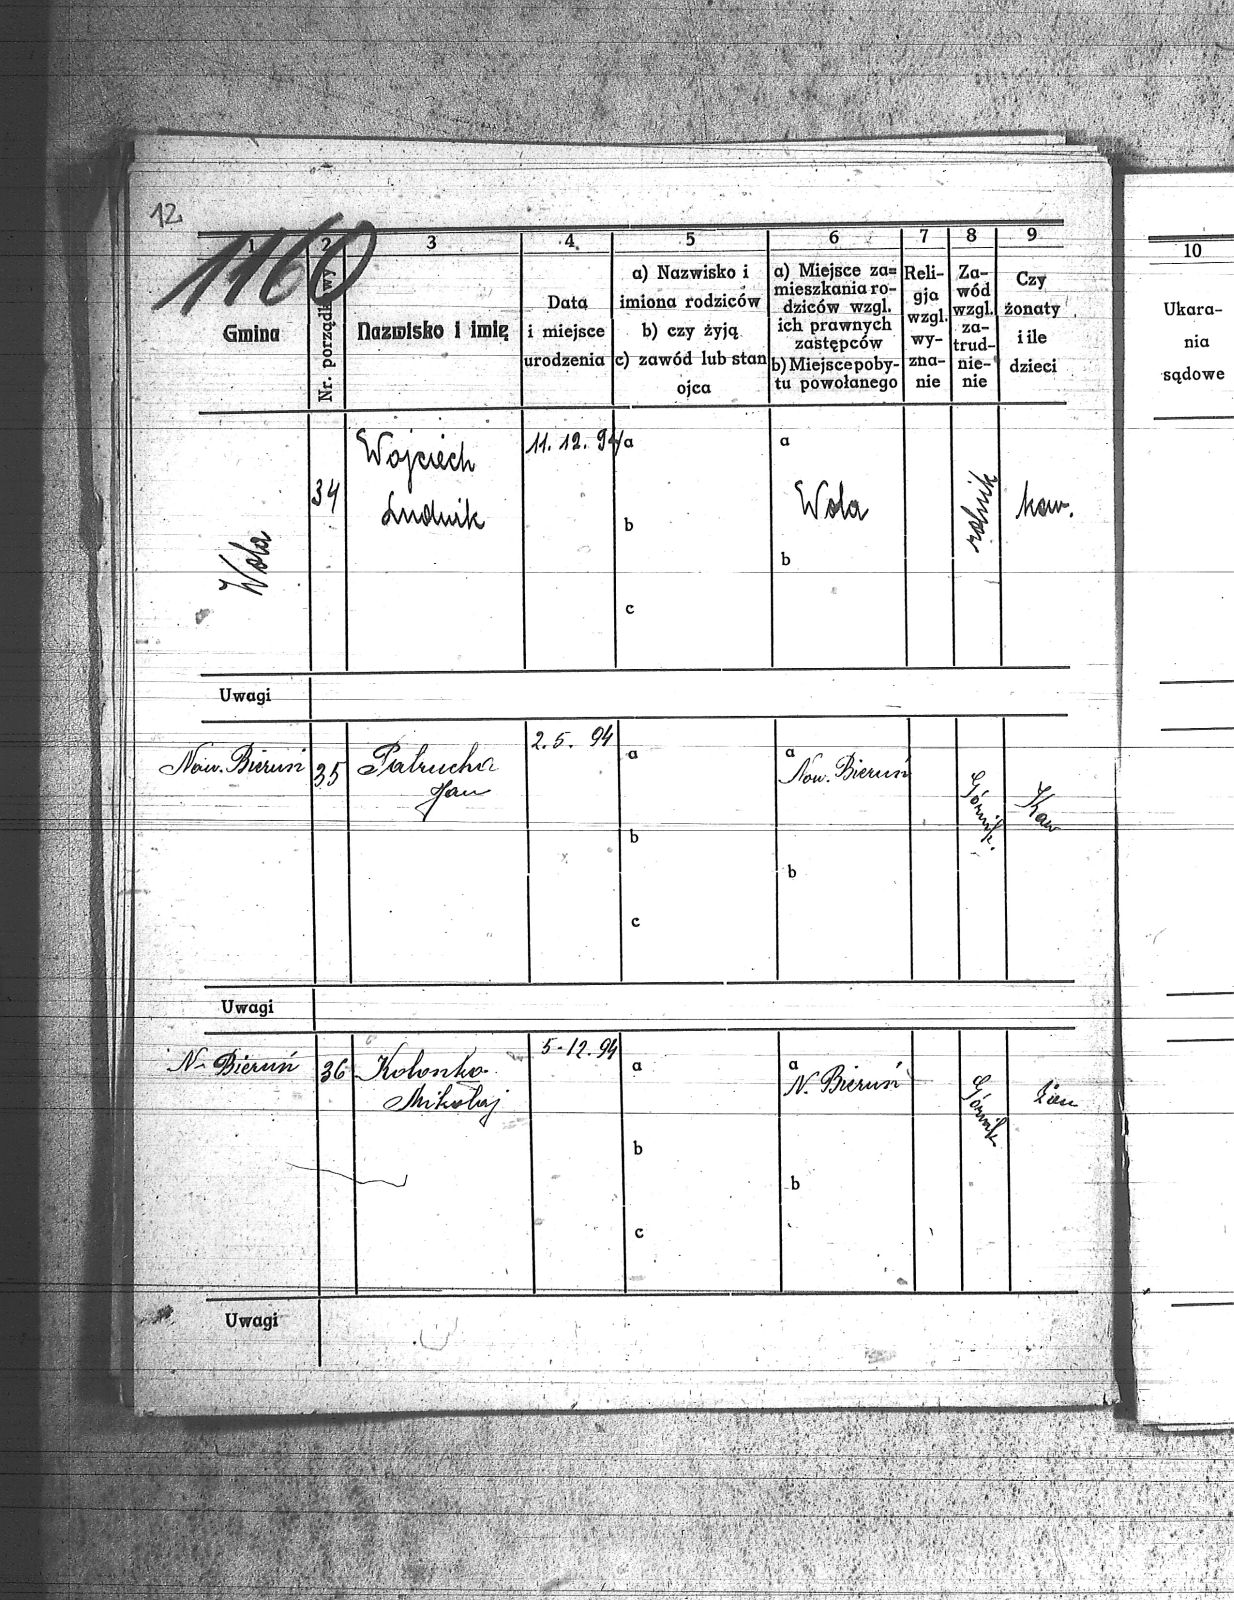 12
1160
1 2 3 4 5 6 7 8 9
Gmina
Nr. porządkowy
Nazwisko i imię
Data
i miejsce
urodzenia
a) Nazwisko i
imiona rodziców
b) czy żyją
c) zawód lub stan
ojca
a) Miejsce za=
mieszkania ro-
dziców wzgl.
ich prawnych
zastępców
b) Miejsce poby-
tu powołanego
Reli-
gja
wzgl.
wy-
zna-
nie
Za-
wód
wzgl.
za-
trud-
nie-
nie
Czy
żonaty
i ile
dzieci
10
Ukara-
nia
sądowe
Wola
34
Wojciech
Ludwik
11. 12. 94
a
b
c
a
Wola
b
rolnik
kaw.
Uwagi
Now. Bieruń
35
Patrucha
Jan
2. 5. 94
a
b
c
a
Now. Bieruń
b
Górnik.
Kaw
Uwagi
N. Bieruń
36
Kolonko
Mikołaj
5-12. 94
a
b
c
a
N. Bieruń
b
Górnik
Żon
Uwagi